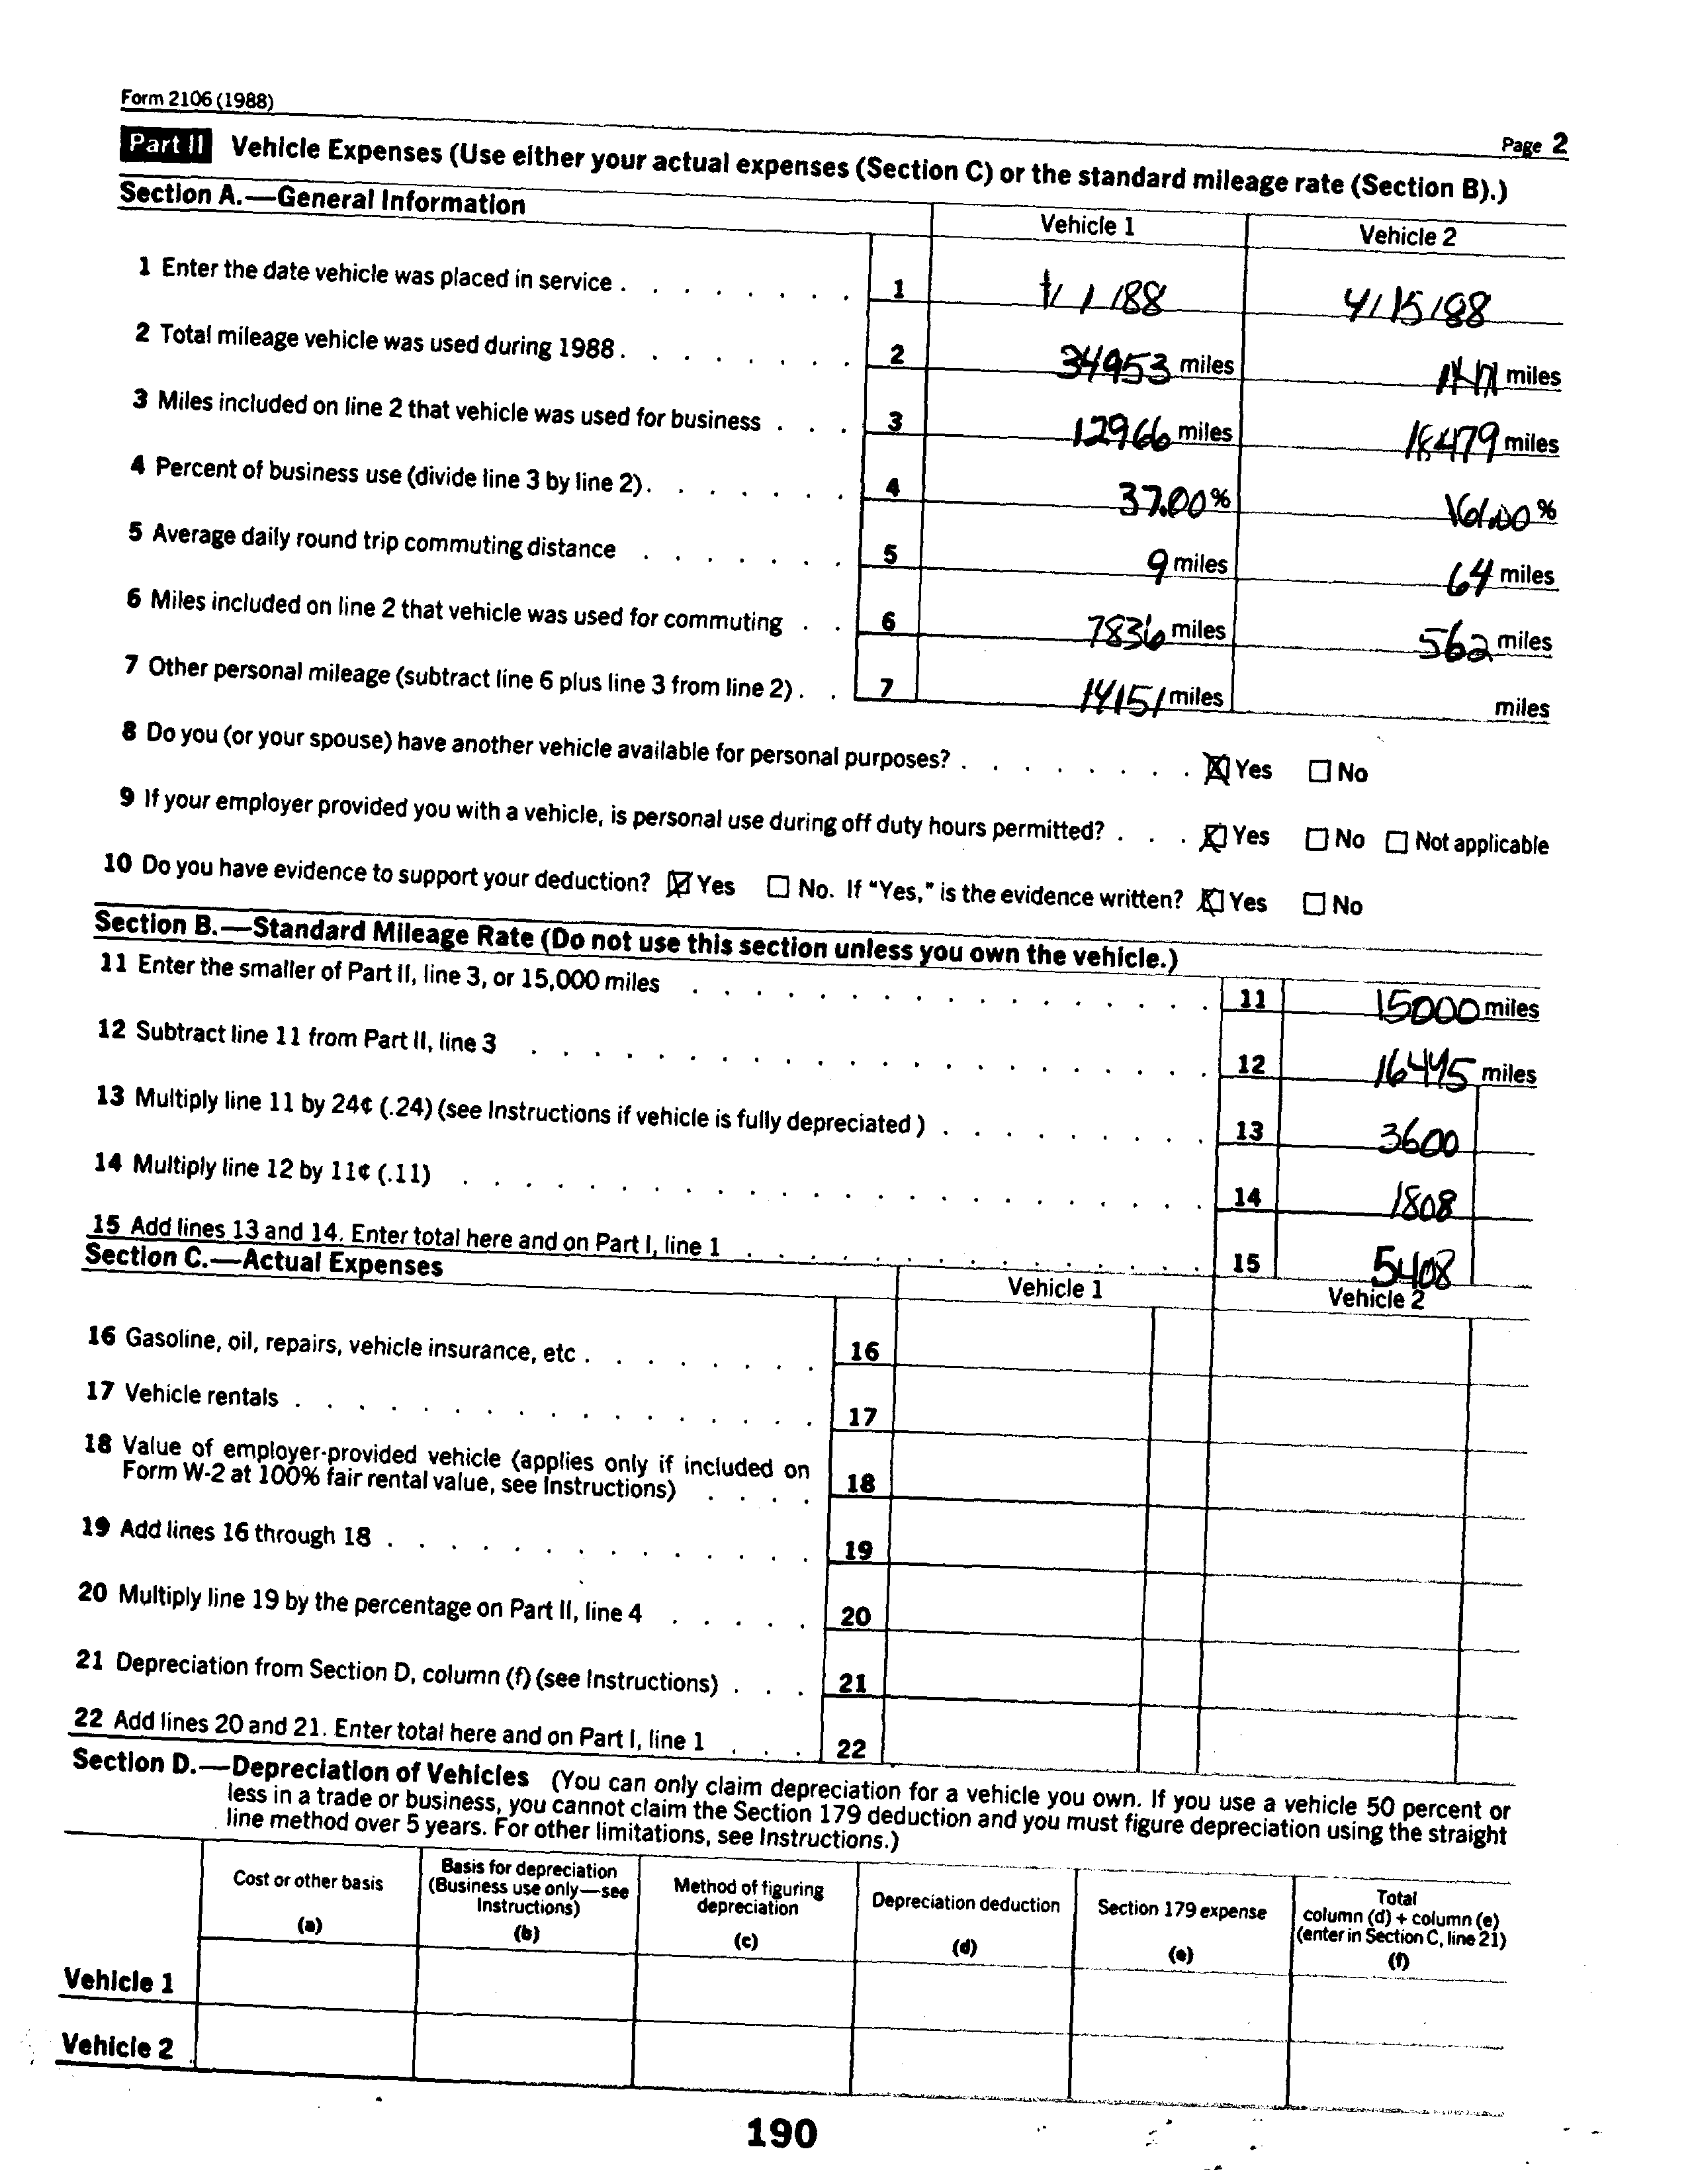 Form 2106 (1988)
Page 2
Part II Vehicle Expenses (Use either your actual expenses (Section C) or the standard mileage rate (Section B).)
Section A.—General Information
Vehicle 1 Vehicle 2
1 Enter the date vehicle was placed in service . 1 / 1 /88 4/15/88
2 Total mileage vehicle was used during 1988 . 2 34953 miles miles
3 Miles included on line 2 that vehicle was used for business . 3 12966 miles 18479 miles
4 Percent of business use (divide line 3 by line 2) . 4 37.00 % %
5 Average daily round trip commuting distance . 5 9 miles 64 miles
6 Miles included on line 2 that vehicle was used for commuting . 6 7836 miles 562 miles
7 Other personal mileage (subtract line 6 plus line 3 from line 2) . 7 14151 miles miles
8 Do you (or your spouse) have another vehicle available for personal purposes? . ☒ Yes ☐ No
9 If your employer provided you with a vehicle, is personal use during off duty hours permitted? . ☒ Yes ☐ No ☐ Not applicable
10 Do you have evidence to support your deduction? ☒ Yes ☐ No. If "Yes," is the evidence written? ☒ Yes ☐ No
Section B.—Standard Mileage Rate (Do not use this section unless you own the vehicle.)
11 Enter the smaller of Part II, line 3, or 15,000 miles . 11 15000 miles
12 Subtract line 11 from Part II, line 3 . 12 16445 miles
13 Multiply line 11 by 24¢ (.24) (see Instructions if vehicle is fully depreciated) . 13 3600
14 Multiply line 12 by 11¢ (.11) . 14 1808
15 Add lines 13 and 14. Enter total here and on Part I, line 1 . 15 5408
Section C.—Actual Expenses
Vehicle 1 Vehicle 2
16 Gasoline, oil, repairs, vehicle insurance, etc . 16
17 Vehicle rentals . 17
18 Value of employer-provided vehicle (applies only if included on
Form W-2 at 100% fair rental value, see Instructions) . 18
19 Add lines 16 through 18 . 19
20 Multiply line 19 by the percentage on Part II, line 4 . 20
21 Depreciation from Section D, column (f) (see Instructions) . 21
22 Add lines 20 and 21. Enter total here and on Part I, line 1 . 22
Section D.—Depreciation of Vehicles (You can only claim depreciation for a vehicle you own. If you use a vehicle 50 percent or
less in a trade or business, you cannot claim the Section 179 deduction and you must figure depreciation using the straight
line method over 5 years. For other limitations, see Instructions.)
Cost or other basis
(a)
Basis for depreciation
(Business use only—see
Instructions)
(b)
Method of figuring
depreciation
(c)
Depreciation deduction
(d)
Section 179 expense
(e)
Total
column (d) + column (e)
(enter in Section C, line 21)
(f)
Vehicle 1
Vehicle 2
190